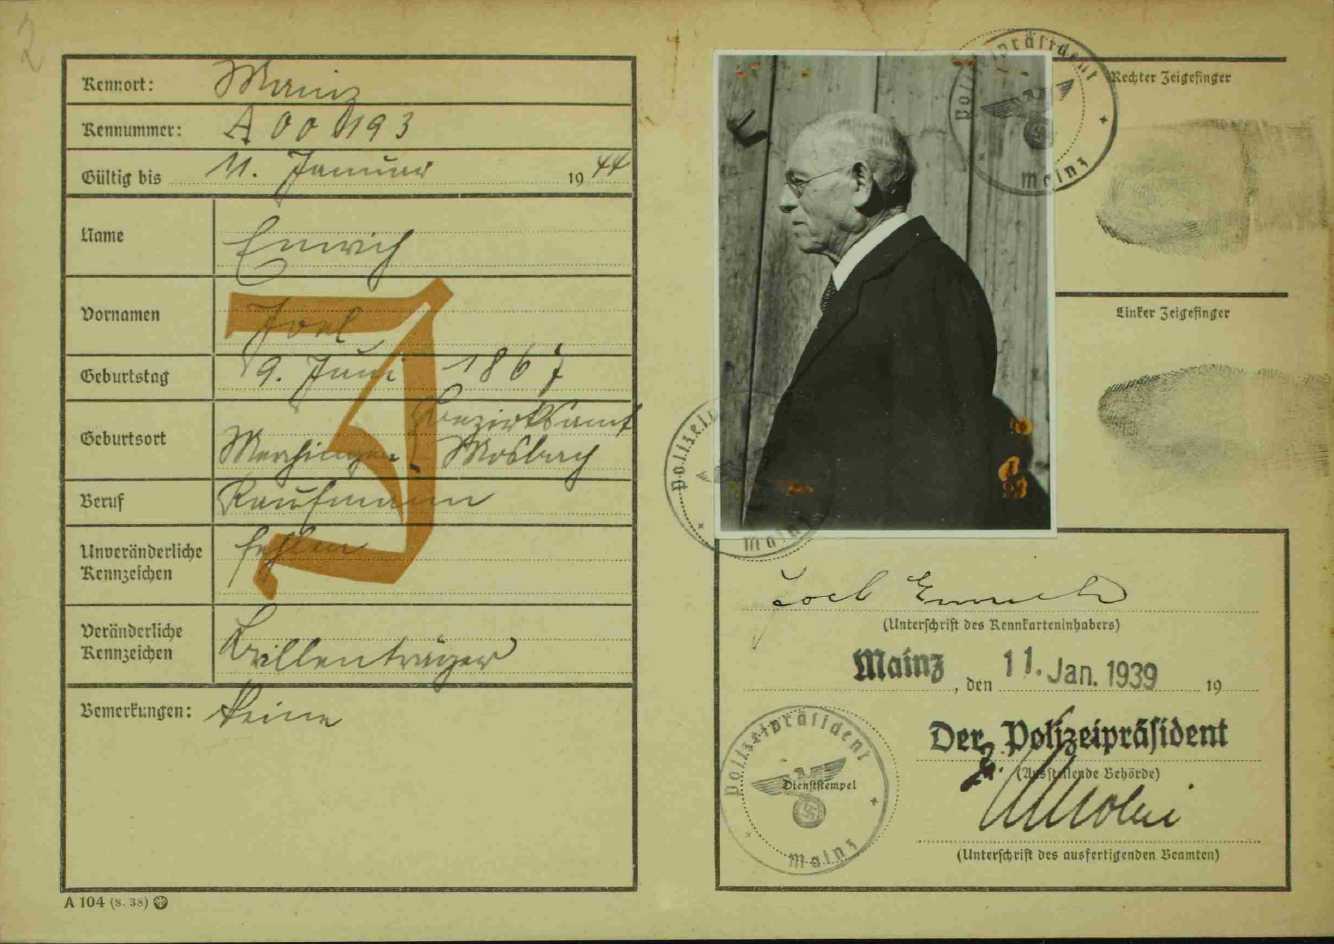 2
Kennort: Mainz
Kennummer: A 00193
Gültig bis 11. Januar 1944
Name Emrich
Vornamen Joel
Geburtstag 9. Juni 1867
Geburtsort Merchingen Bezirksamt Mosbach
Beruf Kaufmann
Unveränderliche Kennzeichen fehlen
Veränderliche Kennzeichen Brillenträger
Bemerkungen: Keine
J
A 104 (8. 38)
Polizeipräsident
Mainz
Rechter Zeigefinger
Linker Zeigefinger
Polizei
Mainz
Joel Emrich
(Unterschrift des Kennkarteninhabers)
Mainz, den 11. Jan. 1939 19
Der Polizeipräsident
(Ausstellende Behörde)
Polizeipräsident
Dienststempel
Mainz
(Unterschrift des ausfertigenden Beamten)